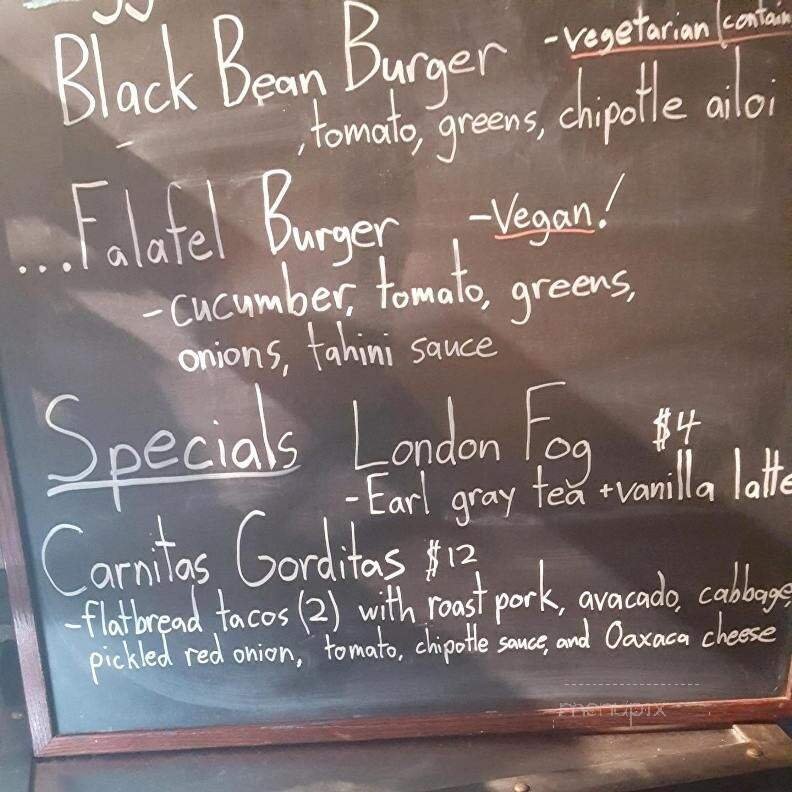 Black Bean Burger -vegetarian (contain
, tomato, greens, chipotle ailoi
...Falafel Burger -Vegan!
-cucumber, tomato, greens,
onions, tahini sauce
Specials London Fog $4
-Earl gray tea +vanilla latte
Carnitas Gorditas $12
-flatbread tacos (2) with roast pork, avacado, cabbage,
pickled red onion, tomato, chipotle sauce, and Oaxaca cheese
menupix